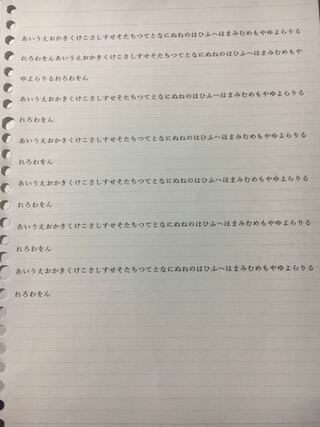 あいうえおかきくけこさしすせそたちつてとなにぬねのはひふへほまみむめもやゆよらりる
れろわをんあいうえおかきくけこさしすせそたちつてとなにぬねのはひふへほまみむめもや
ゆよらりるれろわをん
あいうえおかきくけこさしすせそたちつてとなにぬねのはひふへほまみむめもやゆよらりる
れろわをん
あいうえおかきくけこさしすせそたちつてとなにぬねのはひふへほまみむめもやゆよらりる
れろわをん
あいうえおかきくけこさしすせそたちつてとなにぬねのはひふへほまみむめもやゆよらりる
れろわをん
あいうえおかきくけこさしすせそたちつてとなにぬねのはひふへほまみむめもやゆよらりる
れろわをん
あいうえおかきくけこさしすせそたちつてとなにぬねのはひふへほまみむめもやゆよらりる
れろわをん